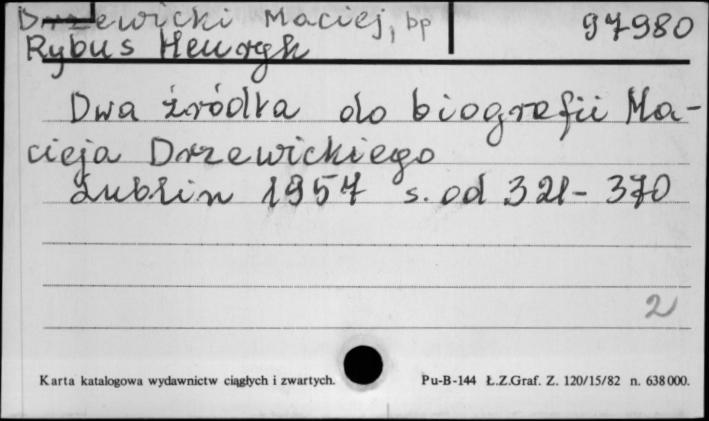 Drzewicki Maciej, bp 97980
Rybus Henryk
Dwa źródła do biografii Ma-
cieja Drzewickiego
Lublin 1957 s. od 321-370
2
Karta katalogowa wydawnictw ciągłych i zwartych. Pu-B-144 Ł.Z.Graf. Z. 120/15/82 n. 638000.